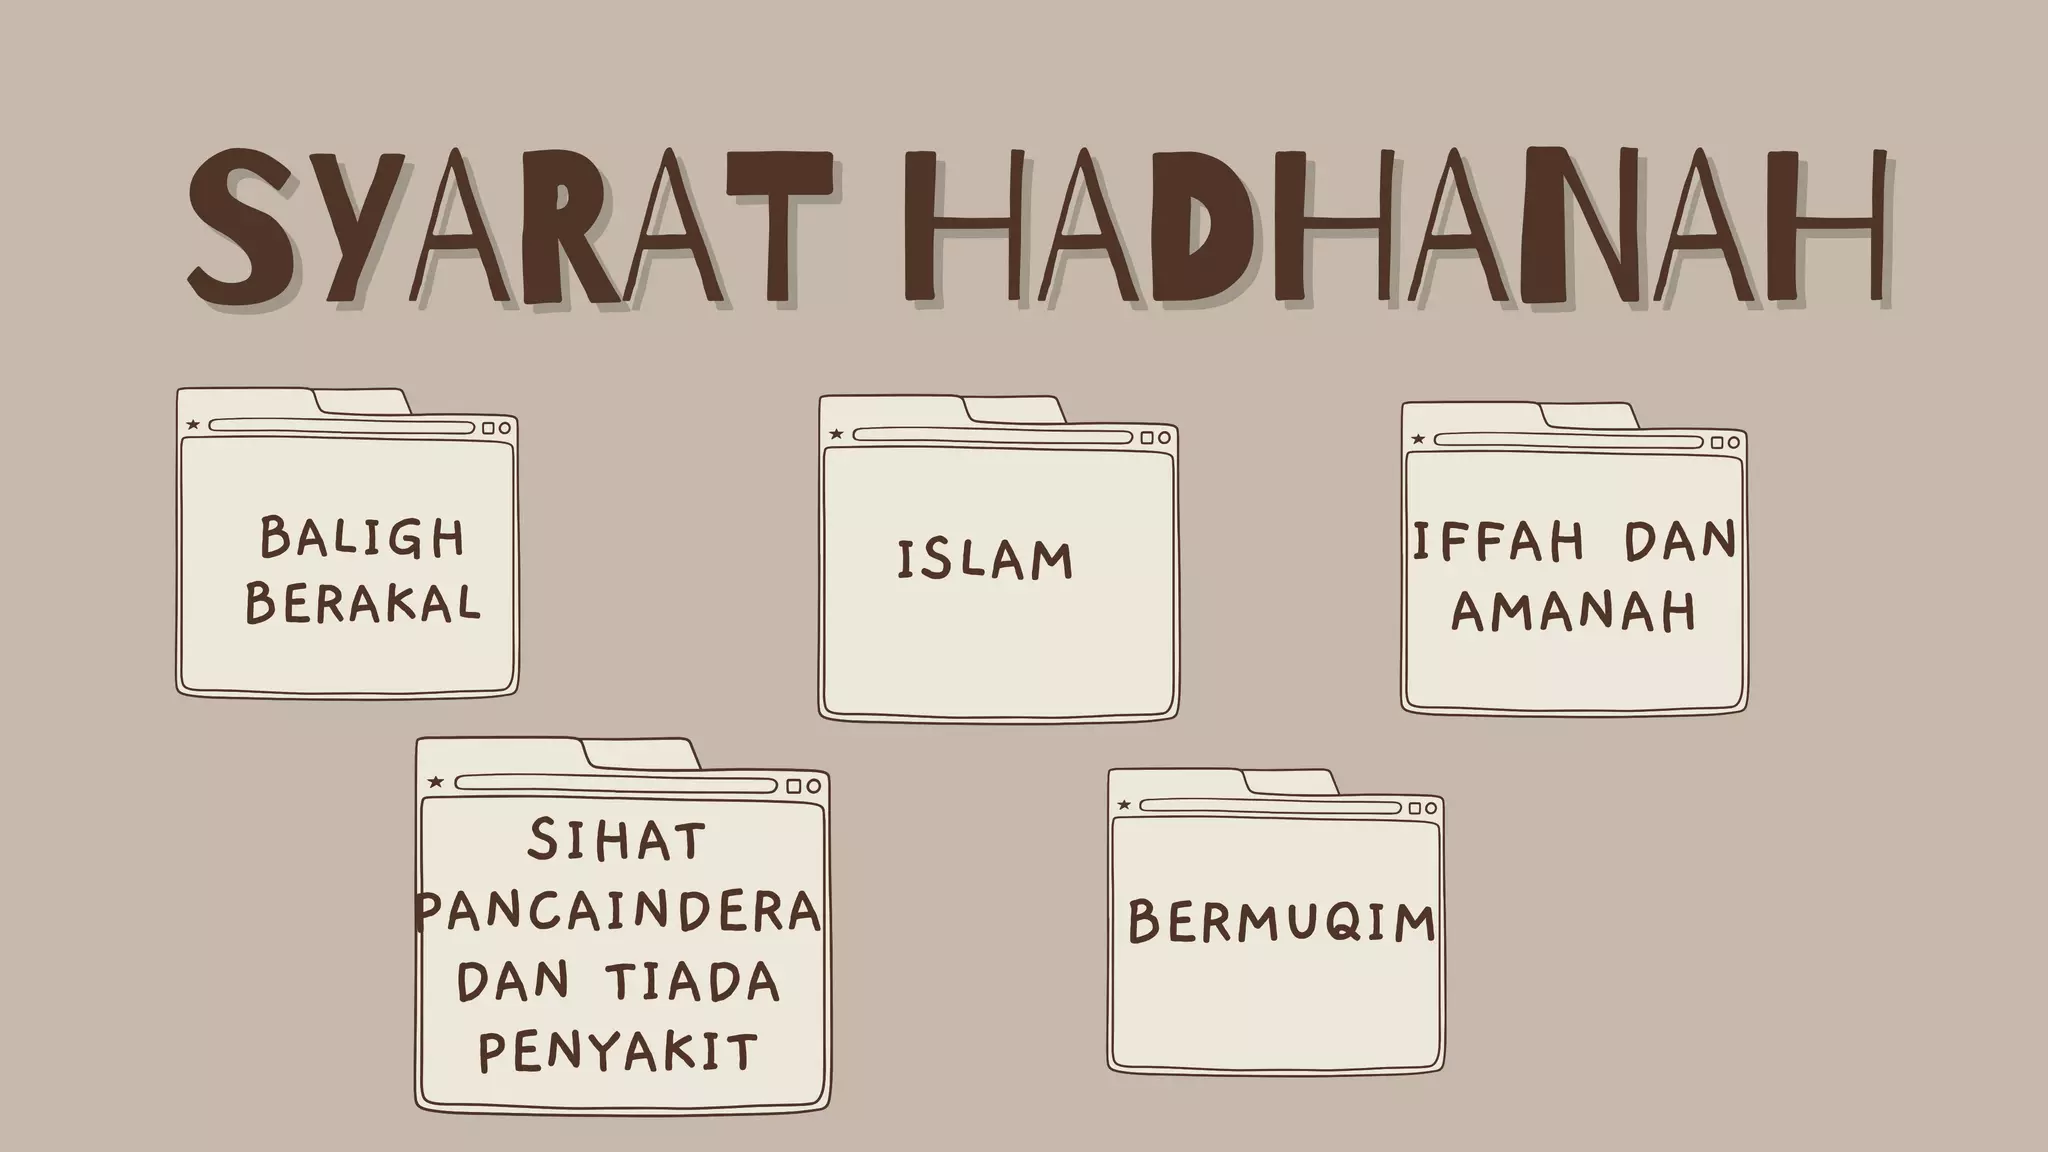 SYARAT HADHANAH
BALIGH
BERAKAL
ISLAM
IFFAH DAN
AMANAH
SIHAT
PANCAINDERA
DAN TIADA
PENYAKIT
BERMUQIM